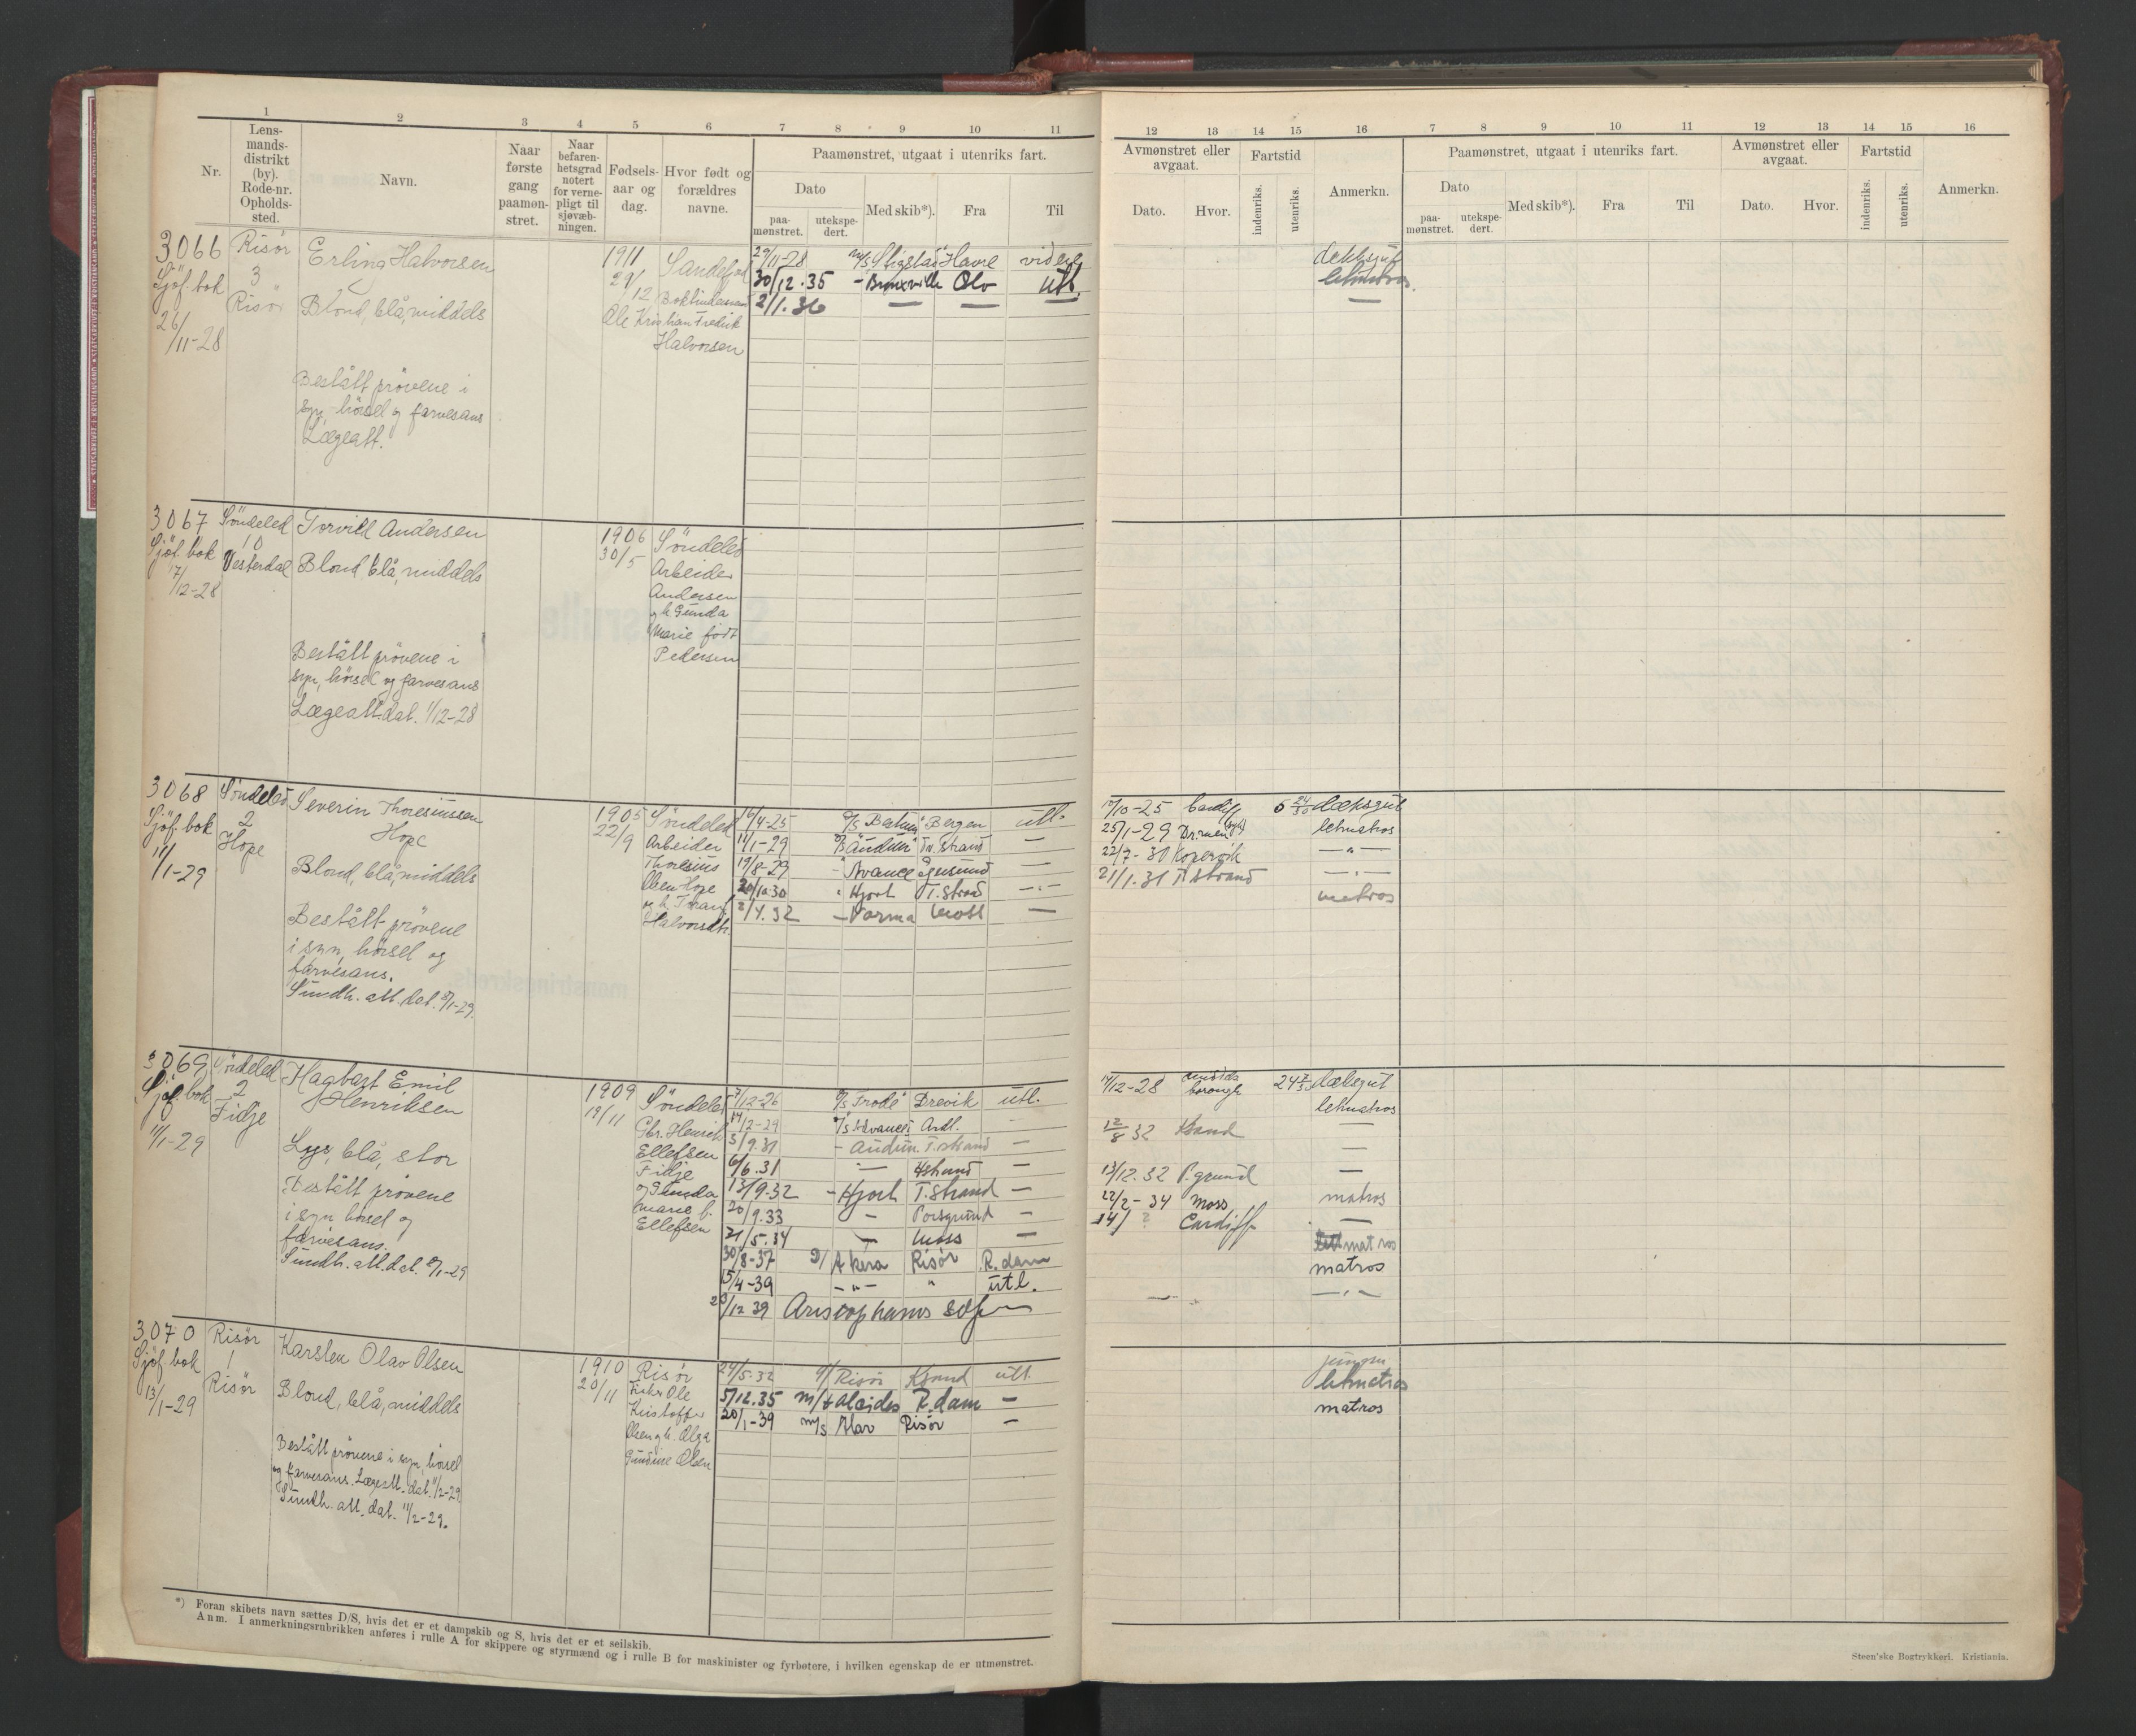 1 2 3 4 5 6 7 8 9 10 11
Nr.
Lens-
mands-
distrikt
(by).
Rode-nr.
Opholds-
sted.
Navn.
Naar
første
gang
paamøn-
stret.
Naar
befaren-
hetsgrad
notert
for verne-
pligt til
sjøvæb-
ningen.
Fødsels-
aar og
dag.
Hvor født og
forældres
navne.
Paamønstret, utgaat i utenriks fart.
Dato
paa-
mønstret.
utekspe-
dert.
Med skib*).
Fra
Til
12 13 14 15 16 7 8 9 10 11 12 13 14 15 16
Avmønstret eller
avgaat.
Dato.
Hvor.
Fartstid
indenriks.
utenriks.
Anmerkn.
Paamønstret, utgaat i utenriks fart.
Dato
paa-
mønstret.
utekspe-
dert.
Med skib*).
Fra
Til
Avmønstret eller
avgaat.
Dato.
Hvor.
Fartstid
indenriks.
utenriks.
Anmerkn.
3066
Sjöf. bok
26/11-28
Risör
3
Risör
Erling Halvorsen
Blond, blå, middels
Bestått prövene i
syn, hörsel og farvesans
Lægeatt.
1911
29/12
Sandefjord
Ole Kristian Fredrik
Halvorsen
29/11-28 Havre videre dekksgut
30/12.35 - Bronxville Olo utl. letmatros
2/1.36 — — — —
3067
Sjöf. bok
17/12-28
Söndeled
10
Vesterdal
Torvild Andersen
Blond, blå, middels
Bestått prövene i
syn, hörsel og farvesans
Lægeatt. dat. 1/12-28
1906
30/5
Söndeled
Arbeider
Andersen
og h. Gunda
Marie födt
Pedersen
3068
Sjöf. bok
11/1-29
Söndeled
2
Hope
Severin Thoresiussen
Hope
Blond, blå, middels
Bestått prövene
i syn, hörsel og
farvesans.
Sundh. att. dat. 8/1-29.
1905
22/9
Söndeled
Arbeider
Thoresius
Olsen Hope
og h.
Halvorsdtr.
16/4-25 Bergen utl. 17/10-25 Cardiff 6 24/30 dæksgut
11/1-29 "Audun" Tv.strand — 25/1-29 Dr.men letmatros
19/8-29 - Avance Egersund — 22/7-30 Kopervik — " —
20/10.30 " Hjort T.strand — 21/1.31 T.strand — " —
2/4.32 - Varma Moss — matros
3069
Sjöf. bok
11/1-29
Söndeled
2
Fidje
Hagbart Emil
Henriksen
Lys, blå, stor
Bestått prövene
i syn hörsel og
farvesans.
Sundh. att. dat. 8/1-29
1909
19/11
Söndeled
Gbr. Henrik
Ellefsen
Fidje
og Gunda
Marie f.
Ellefsen
7/12-26 "Frode" Brevik utl. 14/12-28 24 7/30 dæksgut
14/12-29 "Advance" Ardl. - letmatros
5/9.31 - Audun T.strand - 12/8 32 Ksand —
6/6.31 — —
13/9.32 - Hjort T.strand — 13/12.32 P.grund —
20/9.33 — Porsgrund - 22/2-34 Moss matros
21/5.34 — Moss — 14/ ? Cardiff —
30/8-37 D/ Akera Risör R.dam matros
15/4-39 - " - " utl. matros
20/12 39 Aristophanes — " —
3070
Sjöf. bok
13/1-29
Risör
1
Risör
Karsten Olav Olsen
Blond, blå, middels
Bestått prövene i syn, hörsel
og farvesans. Lægeatt. dat. 11/2-29
Sundh. att. dat. 11/2-29.
1910
20/11
Risör
Fisker Ole
Kristoffer
Olsen og h. Olga
Gundine Olsen
24/5.32 Risör Ksand utl. jungm
5/12.35 m/t Alcides R.dam — letmatros
20/1-39 m/s Mar Risör — matros
*) Foran skibets navn sættes D/S, hvis det er et dampskib og S, hvis det er et seilskib.
Anm. I anmerkningsrubrikken anføres i rulle A for skippere og styrmænd og i rulle B for maskinister og fyrbøtere, i hvilken egenskap de er utmønstret.
Steen'ske Bogtrykkeri. Kristiania.